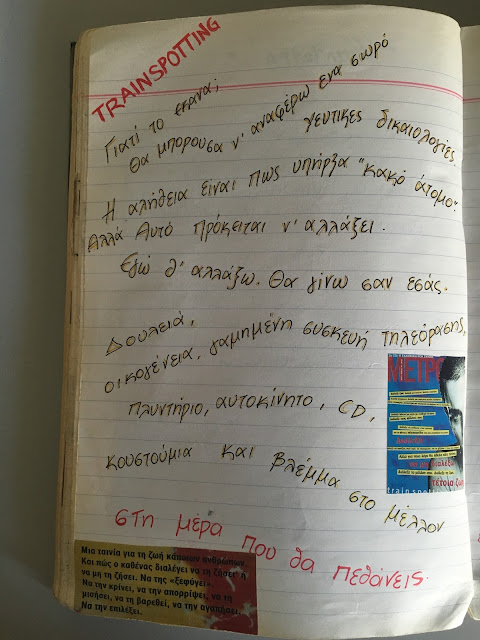 TRAINSPOTTING
Γιατί το εκανα;
Θα μπορουσα ν' αναφέρω ενα σωρό
γευτικες δικαιολογίες.
Η αλήθεια είναι πως υπήρξα "κακό άτομο".
Αλλά Αυτό πρόκειται ν' αλλάξει.
Εγώ θ' αλλάξω. Θα γίνω σαν εσάς.
Δουλειά,
οικογένεια, γαμημένη συσκευή τηλεόρασης,
πλυντήριο, αυτοκίνητο, CD,
κουστούμια και βλέμμα στο μέλλον
στη μέρα που θα πεθάνεις.
ΜΕΤΡΟ
τέτοια ζωή
trainspot
Μια ταινία για τη ζωή κάποιων ανθρώπων.
Και πώς ο καθένας διαλέγει να τη ζήσει ή
να μη τη ζήσει. Να της «ξεφύγει».
Να την κρίνει, να την απορρίψει, να τη
μισήσει, να τη βαρεθεί, να την αγαπήσει.
Να την επιλέξει.